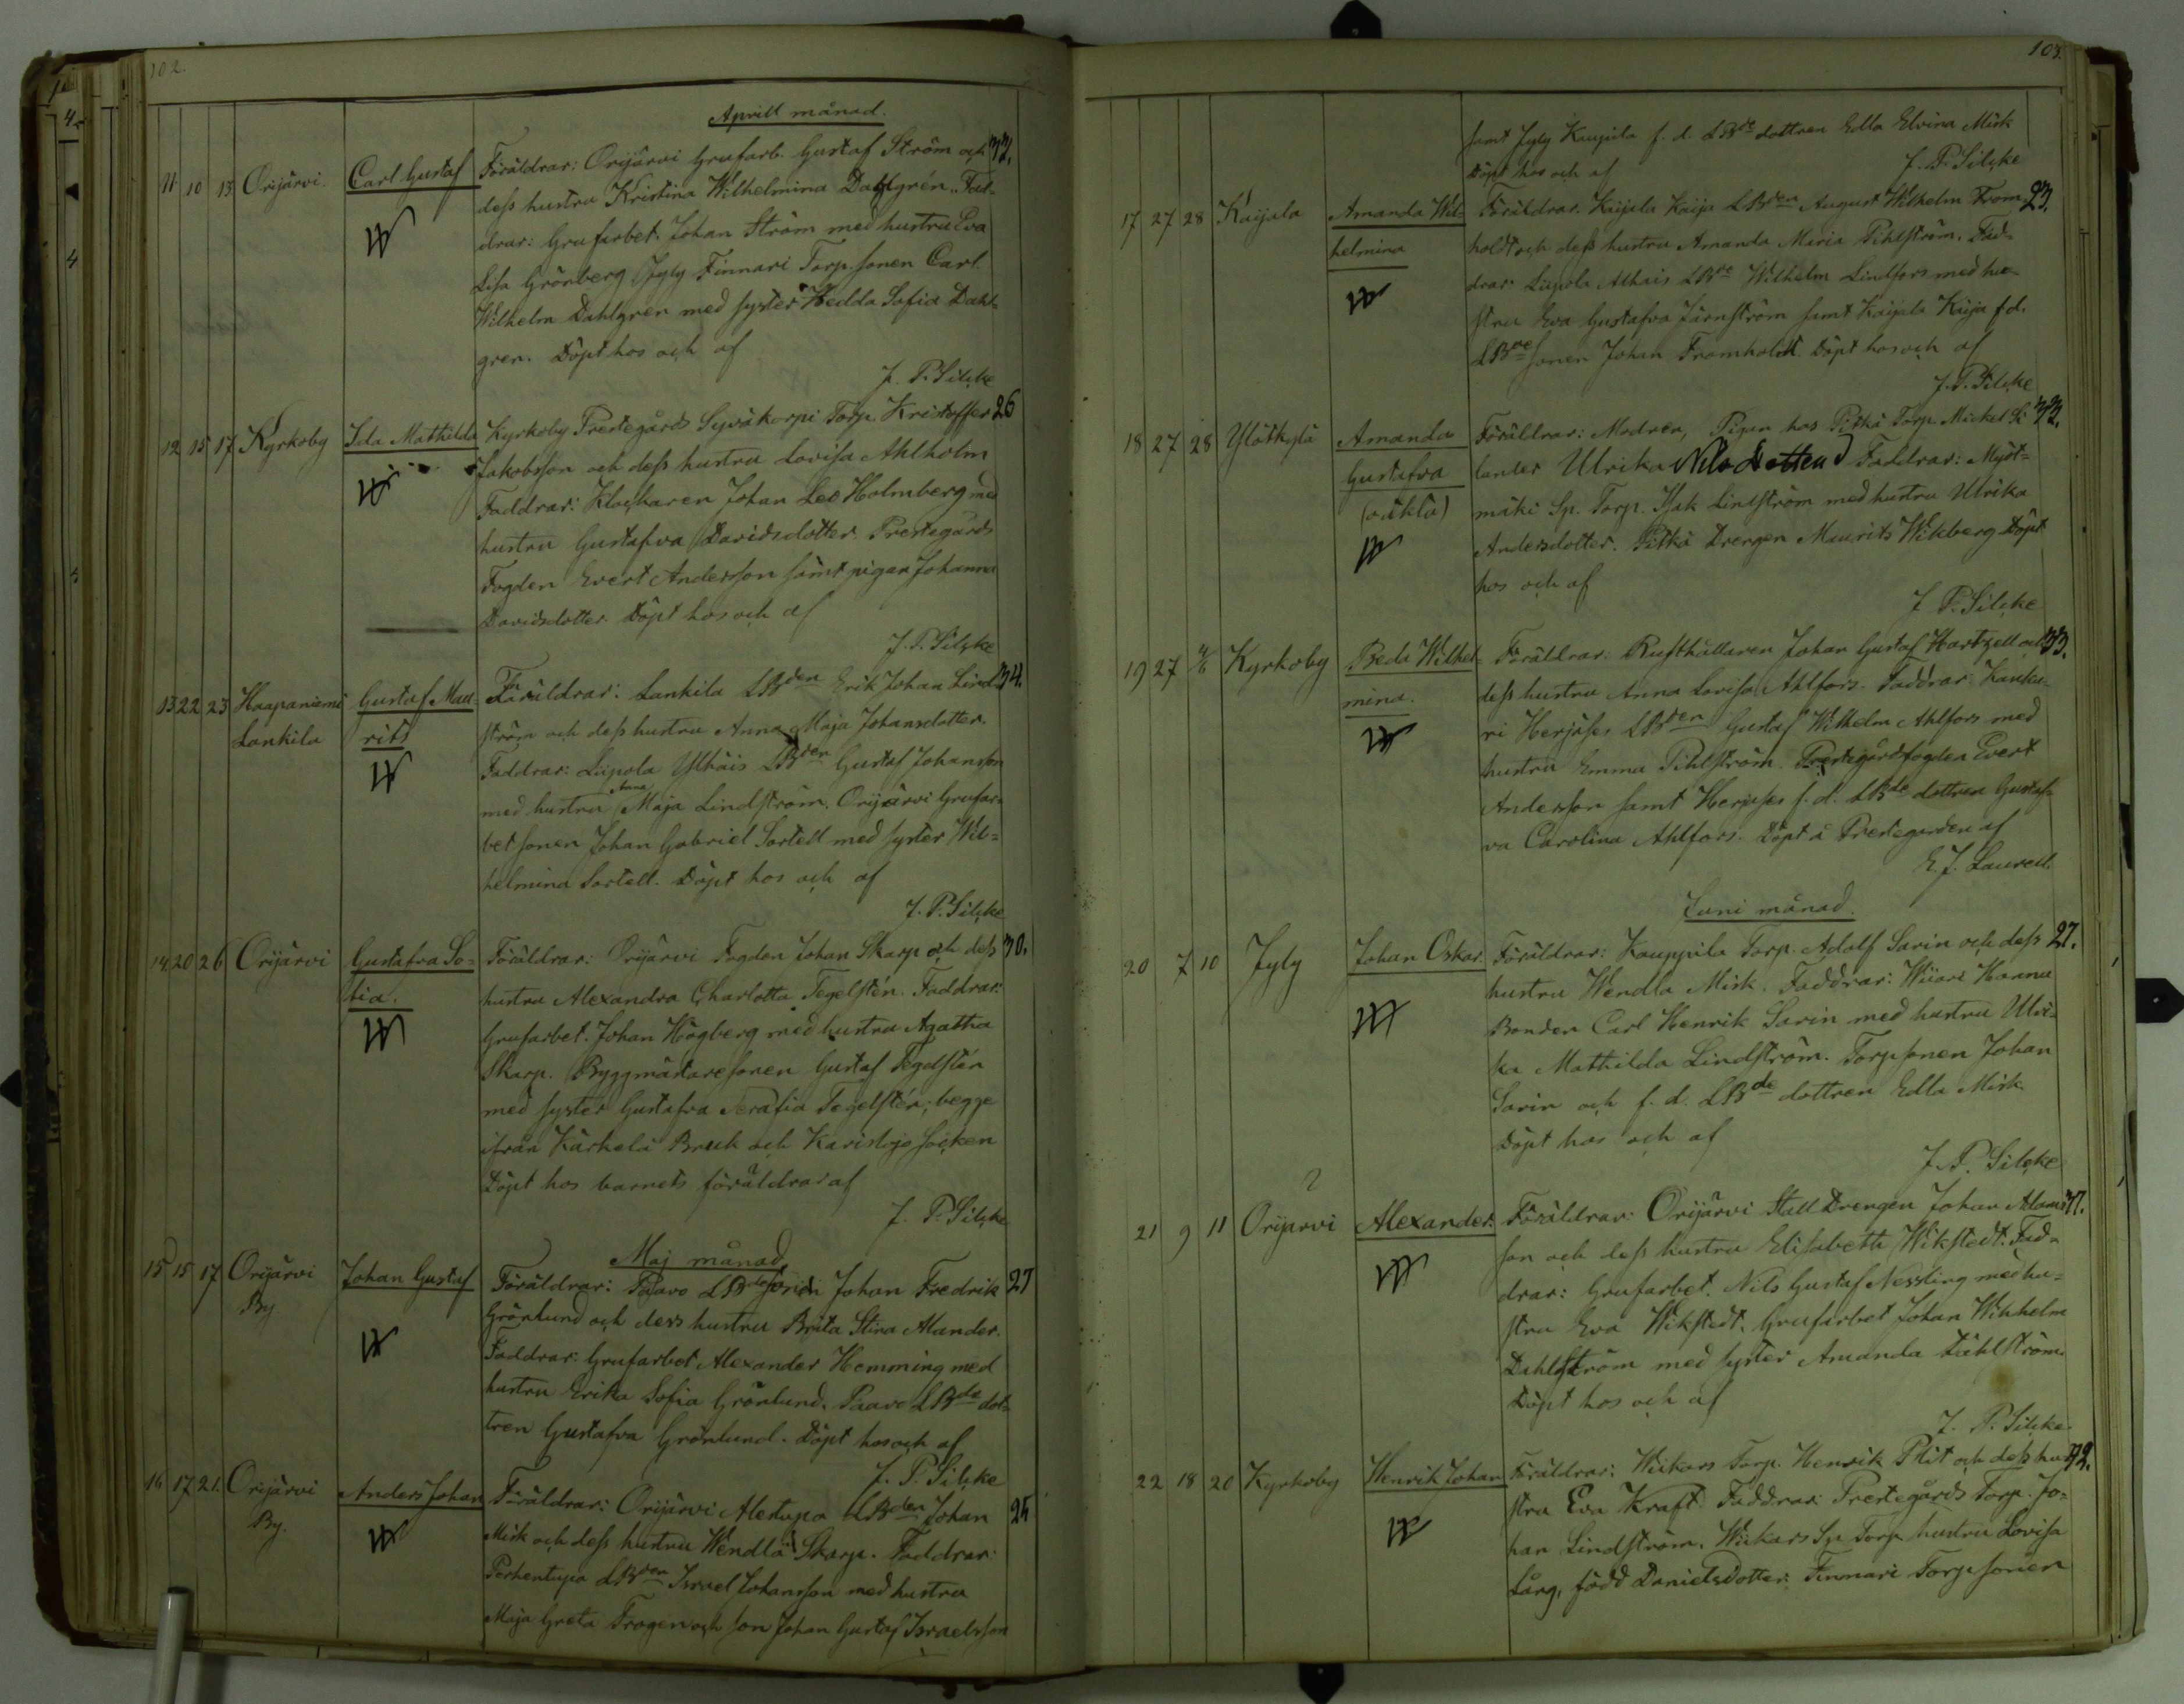 102.
Aprill månad.
11 10 13 Orijärvi. Carl Gustaf Föräldrar: Orijärvi Grufarb. Gustaf Ström och 32.
dess hustru Kristina Wilhelmina Dahlgrén. Fad-
drar: Grufarbet. Johan Ström med hustru Eva
Lisa Grönberg Jyly Finnari Torp. sonen Carl
Wilhelm Dahlgren med syster Hedda Sofia Dahl-
gren. Döpt hos och af
J. P. Silcke
12 15 17 Kyrkoby Ida Mathilda Kyrkoby Prestegårds Syväkorpi Torp. Kristoffer 26
Jakobsson och dess hustru Lovisa Ahlholm
Faddrar: Klockaren Johan Leo Holmberg med
hustru Gustafva Davidsdotter. Prestegårds
Fogden Evert Andersson samt pigan Johanna
Davidsdotter. Döpt hos och af
J. P. Silcke
13 22 23 Haapaniemi Gustaf Mau- Föräldrar: Lankila LBden Erik Johan Lind- 34.
Lankila rits ström och dess hustru Anna Maja Johansdotter.
Faddrar: Lupola Ylhäis LBden Gustaf Johansson
med hustru Anna Maja Lindström. Orijärvi Grufar-
bet sonen Johan Gabriel Sortell med syster Wil-
helmina Sortell. Döpt hos och af
J. P. Silcke
14 20 26 Orijärvi Gustafva So- Föräldrar: Orijärvi Fogden Johan Skarp och dess 30.
fia. hustru Alexandra Charlotta Tegelstén. Faddrar:
Grufarbet. Johan Högberg med hustru Agatha
Skarp. Byggmästaresonen Gustaf Tegelstén
med syster Gustafva Serafia Tegelstén, begge
ifrån Kärkelä Bruk och Karislojo socken
Döpt hos barnets föräldrar af
J. P. Silcke
Maj månad
15 15 17 Orijärvi Johan Gustaf Föräldrar: Paavo LBdesonen Johan Fredrik 27
By. Grönlund och dess hustru Brita Stina Alander.
Faddrar: Grufarbet Alexander Hemming med
hustru Erika Sofia Grönlund. Paavo LBde dot-
tren Gustafva Grönlund. Döpt hos och af
J. P. Silcke
16 17 21. Orijärvi Anders Johan Föräldrar: Orijärvi Alestupa LBden Johan 25
By. Misk och dess hustru Wendla Skarp. Faddrar:
Perhentupa LBden Israel Johansson med hustru
Maja Greta Trogen och son Johan Gustaf Israelsson
103.
samt Jyly Kaupila f. d. LBde dottren Edla Elvira Misk
Döpt hos och af
J. P. Silcke
17 27 28 Kaijala Amanda Wil- Föräldrar. Kaijala Kaija LBden August Wilhelm From- 23.
helmina holdt och dess hustru Amanda Maria Pihlström. Fad-
drar Lupola Alhais LBde Wilhelm Lindfors med hu-
stru Eva Gustafva Järnström samt Kaijala Kaija f d.
LBde sonen Johan Fromholdt. Döpt hos och af
J. P. Silcke
18 27 28 Ylötkylä Amanda Föräldrar: Modren, Pigan hos Pitkä Torp. Mickel
Gustafva lander Ulrika Nils Dotter Faddrar: Myöt-
(oäkta) mäki Sp. Torp. Isak Lindström med hustru Ulrika
Andersdotter. Pitkä Drengen Maurits Wikberg Döpt
hos och af
J. P. Silcke
19 27 Kyrkoby Beda Wilhel- Föräldrar: Rusthållaren Johan Gustaf Hartzell och 33.
mina. dess hustru Anna Lovisa Ahlfors. Faddrar
ri Herjäses LBden Gustaf Wilhelm Ahlfors med
hustru Emma Pihlström. Prestegårdsfogden Evert
Andersson samt Herjäses f. d. LBde dottren Gustaf-
va Carolina Ahlfors. Döpt i Prestegården af
E. J. Laurell.
Juni månad.
20 7 10 Jyly Johan Oskar. Föräldrar: Kauppila Torp. Adolf Sarin och dess 27.
hustru Wendla Misk. Faddrar: Wiiari Hannu
Bonden Carl Henrik Sarin med hustru Ulri-
ka Mathilda Lindström. Torpsonen Johan
Sarin och f. d. LBde dottren Edla Misk
Döpt hos och af
J. P. Silcke
21 9 11 Orijärvi Alexander. Föräldrar: Orijärvi Stall Drengen Johan Adams-
son och dess hustru Elisabeth Wikstedt. Fad-
drar: Grufarbet. Nils Gustaf Nessling med hu-
stru Eva Wikstedt. Grufarbet Johan Wihhelm
Dahlström med syster Amanda Dahlström.
Döpt hos och af
J. P. Silcke.
22 18 20 Kyrkoby Henrik Johan Föräldrar: Wiikars Torp. Henrik Plit och dess hu-
stru Eva Kraft. Faddrar: Prestegårds Torp. Jo-
han Lindström. Wiikars Sp Torp. hustru Lovisa
Lång, född Danielsdotter. Finnari Torpsonen